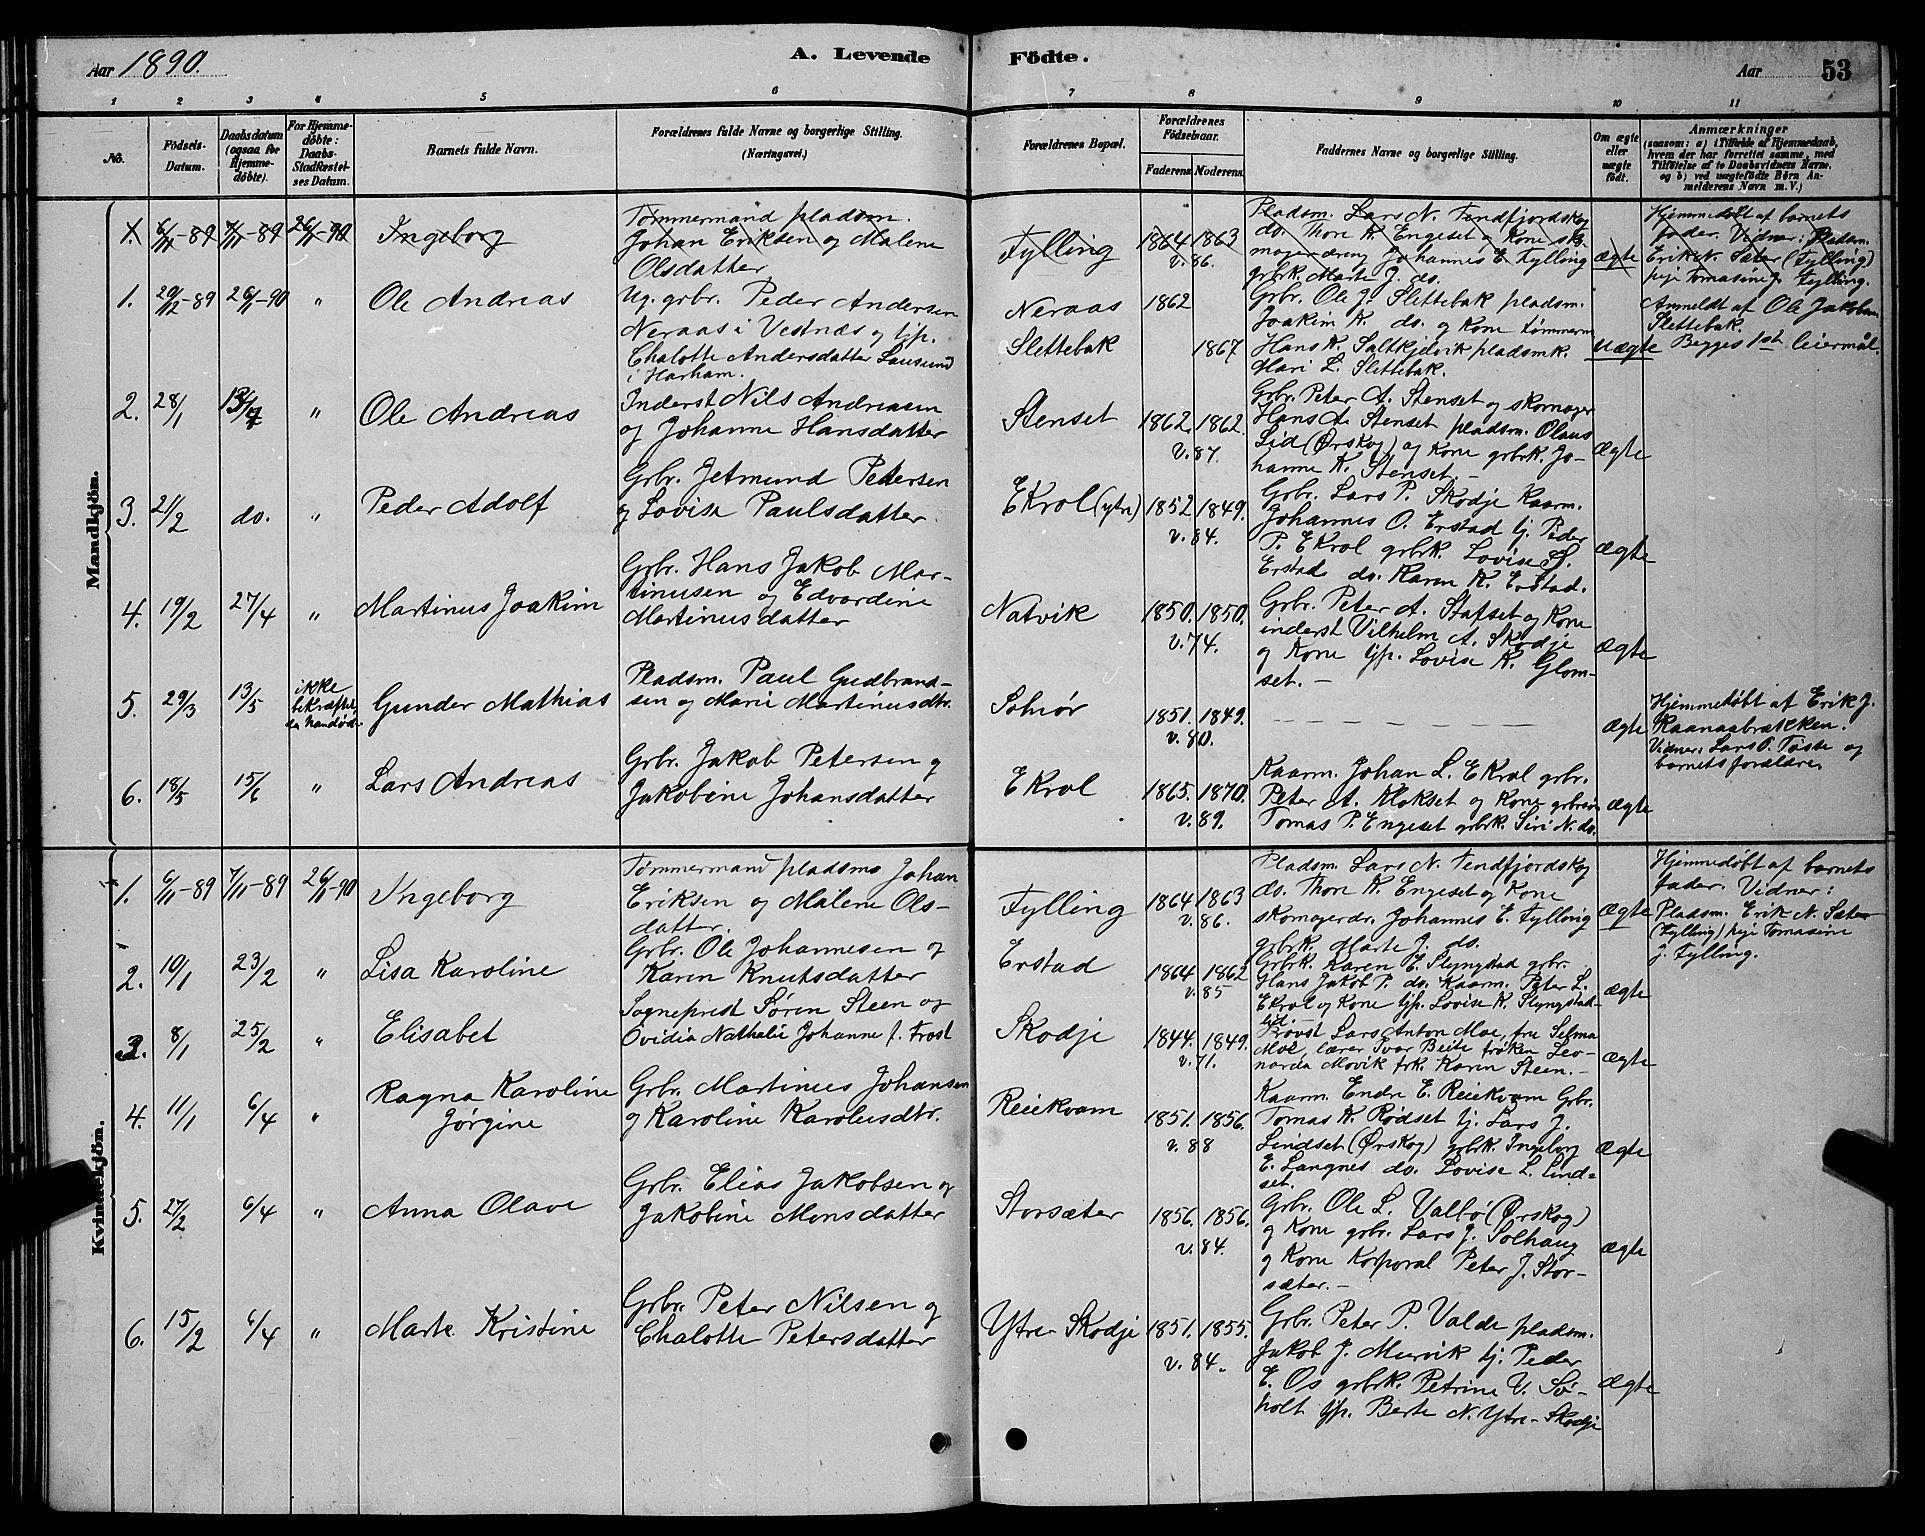 Aar 1890.
A. Levende
Födte.
Aar
53
1 2 3 4 5 6 7 8 9 10 11
No.
Födsels-Datum.
Daabsdatum (ogsaa for Hjemme-döbte).
For Hjemme-döbte: Daabs-Stadfæstel-ses Datum.
Barnets fulde Navn.
Forældrenes fulde Navne og borgerlige Stilling.
(Næringsvei.)
Forældrenes Bopæl.
Forældrenes Födselsaar.
Faderens Moderens
Faddernes Navne og borgerlige Stilling.
Om ægte eller uægte födt.
Anmærkninger
(saasom: a) i Tilfælde af Hjemmedaab,
hvem der har forrettet samme, med
Tilföielse af to Daabsvidners Navne.
og b) ved uægtefödte Börn An-
melderens Navn m. V.)
Mandkjön.
1. 6/11-89 7/11-89 26/1-90 Ingeborg
Tømmermand pladsm.
Johan Eriksen og Malene
Olsdatter
Fylling 1864 1863
v. 86.
Pladsm. Lars N. Tendfjordskog
do. Thore K. Engeset og Kone sko-
magerdreng Johannes E. Fylling
grbrk. Marte J. do.
ægte
Hjemmedøbt af barnets
fader. Vidner: Pladsm.
Erik N. Sæter (Fylling)
pige Tomasine J. Fylling.
1. 29/12-89 26/1-90 " Ole Andreas
Ug. grbr. Peder Andersen
Neraas i Vestnæs og tjp.
Chalotte Andersdatter Lausund
i Harham.
Neraas 1862
Slettebak 1867
Grbr. Ole J. Slettebak pladsm.
Joakim K. do. og Kone tømmerm
Hans K. Saltkjelvik pladsmk.
Mari L. Slettebak.
Uægte
Anmeldt af Ole Jakobsen
Slettebak.
Begges 1ste leiermål.
2. 28/1 " Ole Andreas
Inderst Nils Andreasen
og Johanne Hansdatter
Stenset 1862. 1862.
v. 87.
Grbr. Peter A. Stenset og skomager
Hans A. Stenset pladsm. Olaus
Lid (Ørskog) og Kone grbrk. Jo-
hanne K. Stenset. -
Ægte
3. 21/2 do. " Peder Adolf
Grbr. Jetmund Petersen
og Lovise Paulsdatter
Ekrol (ytre) 1852 1849.
v. 84.
Grbr. Lars P. Skodje Kaarm.
Johannes O. Erstad tj. Peder
P. Ekrol grbrk. Lovise S.
Erstad do. Karen K. Erstad.
Ægte
4. 19/2 27/4 " Martinus Joakim
Grbr. Hans Jakob Mar-
tinusen og Edvardine
Martinusdatter
Natvik 1850. 1850.
v. 74.
Grbr. Peter A. Stafset og Kone
inderst Vilhelm A. Skodje
og Kone tjp. Lovise K. Glom-
set. -
Ægte
5. 29/3 13/5 ikke bekræftet, da han døde Gunder Mathias
Pladsm. Paul Gudbrand-
sen og Marie Martinusdtr.
Solnør 1851. 1849.
v. 80.
Ægte
Hjemmedøbt af Erik J.
Raanaabrækken.
Vidner: Lars O. Tøsse og
barnets forældre.
6. 18/5 15/6 " Lars Andreas
Grbr. Jakob Petersen og
Jakobine Johansdatter
Ekrol 1865. 1870.
v. 89.
Kaarm. Johan L. Ekrol grbr.
Peter A. Klokset og Kone grbrsøn
Tomas P. Engeset grbrk. Siri N. do.
Ægte
Kvindekjön.
1. 6/11-89 7/11-89 26/1-90 Ingeborg
Tømmermand pladsms Johan
Eriksen og Malene Ols-
datter.
Fylling 1864 1863
v. 86.
Pladsm. Lars N. Tendfjordskog
do. Thore K. Engeset og Kone
skomagerdr. Johannes E. Fylling
grbrk. Marte J. do.
Ægte
Hjemmedøbt af barnets
fader. Vidner:
Pladsm. Erik N. Sæter
(Fylling) pige Tomasine
J. Fylling.
2. 10/1 23/2 " Lisa Karoline
Grbr. Ole Johannesen og
Karen Knutsdatter
Erstad 1864. 1862
v. 85
Grbrk. Karen E. Slyngstad grbr.
Hans Jakob P. do. Kaarm. Peter L.
Ekrol og Kone tjp. Lovise K. Slyngstad-
lid.
Ægte
3. 8/1 25/2 " Elisabet
Sogneprest Søren Steen og
Ovidia Nathalie Johanne f. Frost
Skodje 1844. 1849.
v. 71.
Provst Lars Anton Moe, fru Selma
Moe, lærer Ivar Beite frøken Leo-
narda Movik frk. Karen Steen. -
Ægte
4. 11/1 6/4 " Ragna Karoline
Jørgine
Grbr. Martinus Johansen
og Karoline Karolusdtr.
Reiekvam 1851. 1856.
v. 88
Kaarm. Endre E. Reiekvam Grbr.
Tomas K. Rødset tj. Lars J.
Lindset (Ørskog) grbrk. Ingeborg
E. Langnes do. Lovise L. Lind-
set.
Ægte
5. 27/2 6/4 " Anna Olave
Grbr. Elias Jakobsen og
Jakobine Monsdatter
Storsæter 1856. 1856.
v. 84.
Grbr. Ole L. Valbø (Ørskog)
og Kone grbr. Lars J. Solhaug
og Kone Korporal Peter J. Stor-
sæter. -
Ægte
6. 15/2 6/4 " Marte Kristine
Grbr. Peter Nilsen og
Chalotte Petersdatter
Ytre Skodje 1851. 1855.
v. 84.
Grbr. Peter P. Valde pladsm.
Jakob J. Murvik tj. Peder
E. Os grbrk. Petrine V. Sø-
holt tjp. Berte N. Ytre-Skodje
Ægte